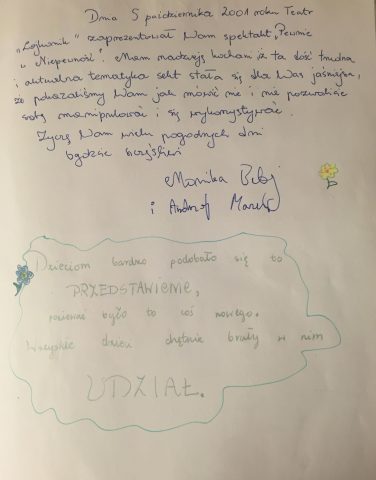 Dnia 5 października 2001 roku Teatr
zaprezentował Wam spektakl „Pewnie
Niepewność". Mam nadzieję kochani iż ta dość trudna
i aktualna tematyka sekt stała się dla Was jaśniejsza,
że pokazaliśmy Wam jak mówić nie i nie pozwalać
sobą manipulować i się wykorzystywać.
Życzę Wam wielu pogodnych dni
bądźcie szczęśliwi
Monika
i Andrzej
Dzieciom bardzo podobało się to
PRZEDSTAWIENIE,
ponieważ było to coś nowego.
Wszystkie dzieci chętnie brały w nim
UDZIAŁ.